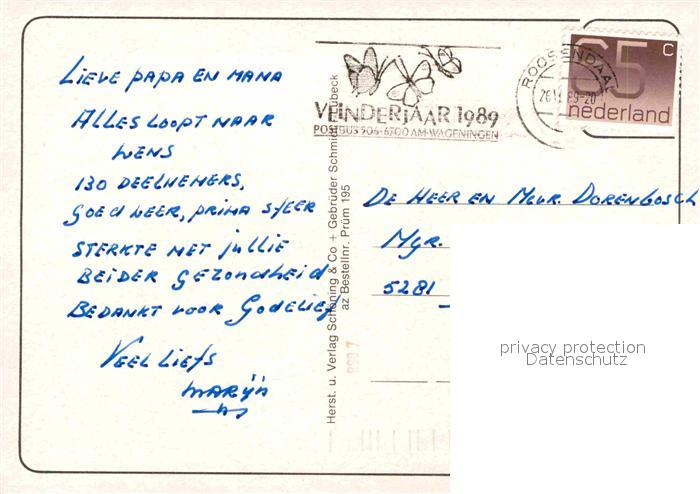 Lieve papa en mama
Alles loopt naar
wens
130 deelnemers,
goed weer, prima sfeer
Sterkte met jullie
beider gezondheid
Bedankt voor Godelief
Veel liefs
Marijn
VLINDERJAAR 1989
POSTBUS 906-6700 AM-WAGENINGEN
ROOSENDAAL
55 c
nederland
Herst. u. Verlag Schöning & Co + Gebrüder Schmidt Lübeck
az Bestellnr. Prüm 195
De Heer en Mevr. Dorenbosch
Mgr.
5281
privacy protection
Datenschutz